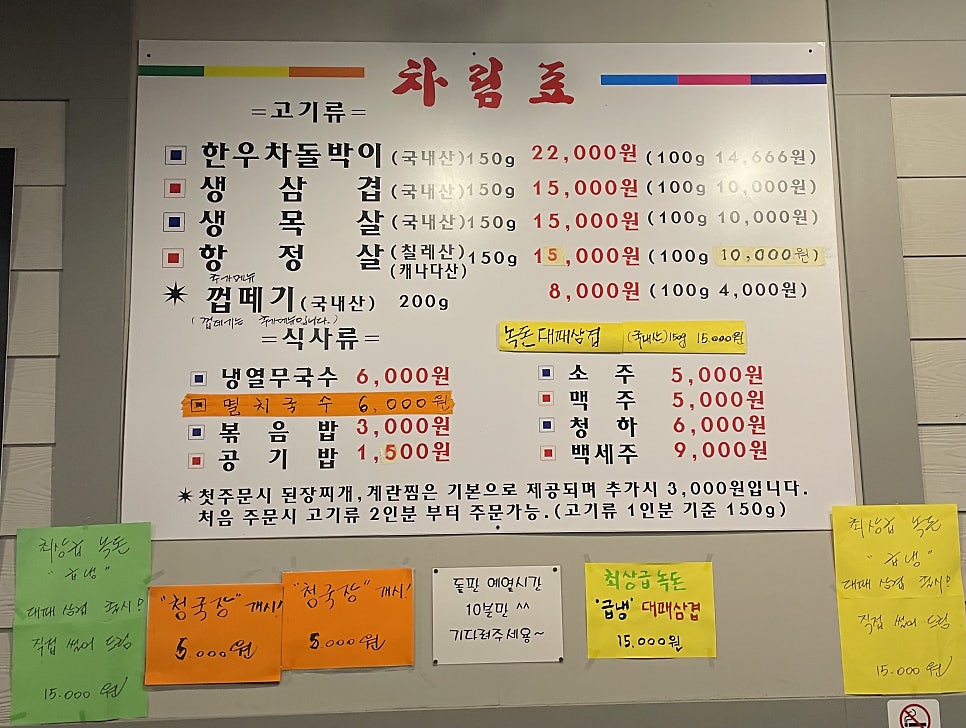 차림표
=고기류=
한우차돌박이 (국내산)150g 22,000원 (100g 14,666원)
생삼겹 (국내산)150g 15,000원 (100g 10,000원)
생목살 (국내산)150g 15,000원 (100g 10,000원)
항정살 (칠레산)(캐나다산)150g 15,000원 (100g 10,000원)
추가메뉴
✴ 껍떼기(국내산) 200g 8,000원 (100g 4,000원)
(껍데기는 추가메뉴입니다.)
녹돈 대패삼겹 (국내산)150g 15.000원
=식사류=
냉열무국수 6,000원
멸치국수 6,000원
볶음밥 3,000원
공기밥 1,500원
소주 5,000원
맥주 5,000원
청하 6,000원
백세주 9,000원
✴첫주문시 된장찌개,계란찜은 기본으로 제공되며 추가시 3,000원입니다.
처음 주문시 고기류 2인분 부터 주문가능.(고기류 1인분 기준 150g)
최상급 녹돈
"급냉"
대패 삼겹 출시!
직접 썰어 드림
15.000원
"청국장" 개시!
5.000원
"청국장" 개시!
5.000원
돌판 예열시간
10분만 ^^
기다려주세용~
최상급 녹돈
'급냉' 대패삼겹
15.000원
최상급 녹돈
"급냉"
대패 삼겹 출시!
직접 썰어 드림
15.000원